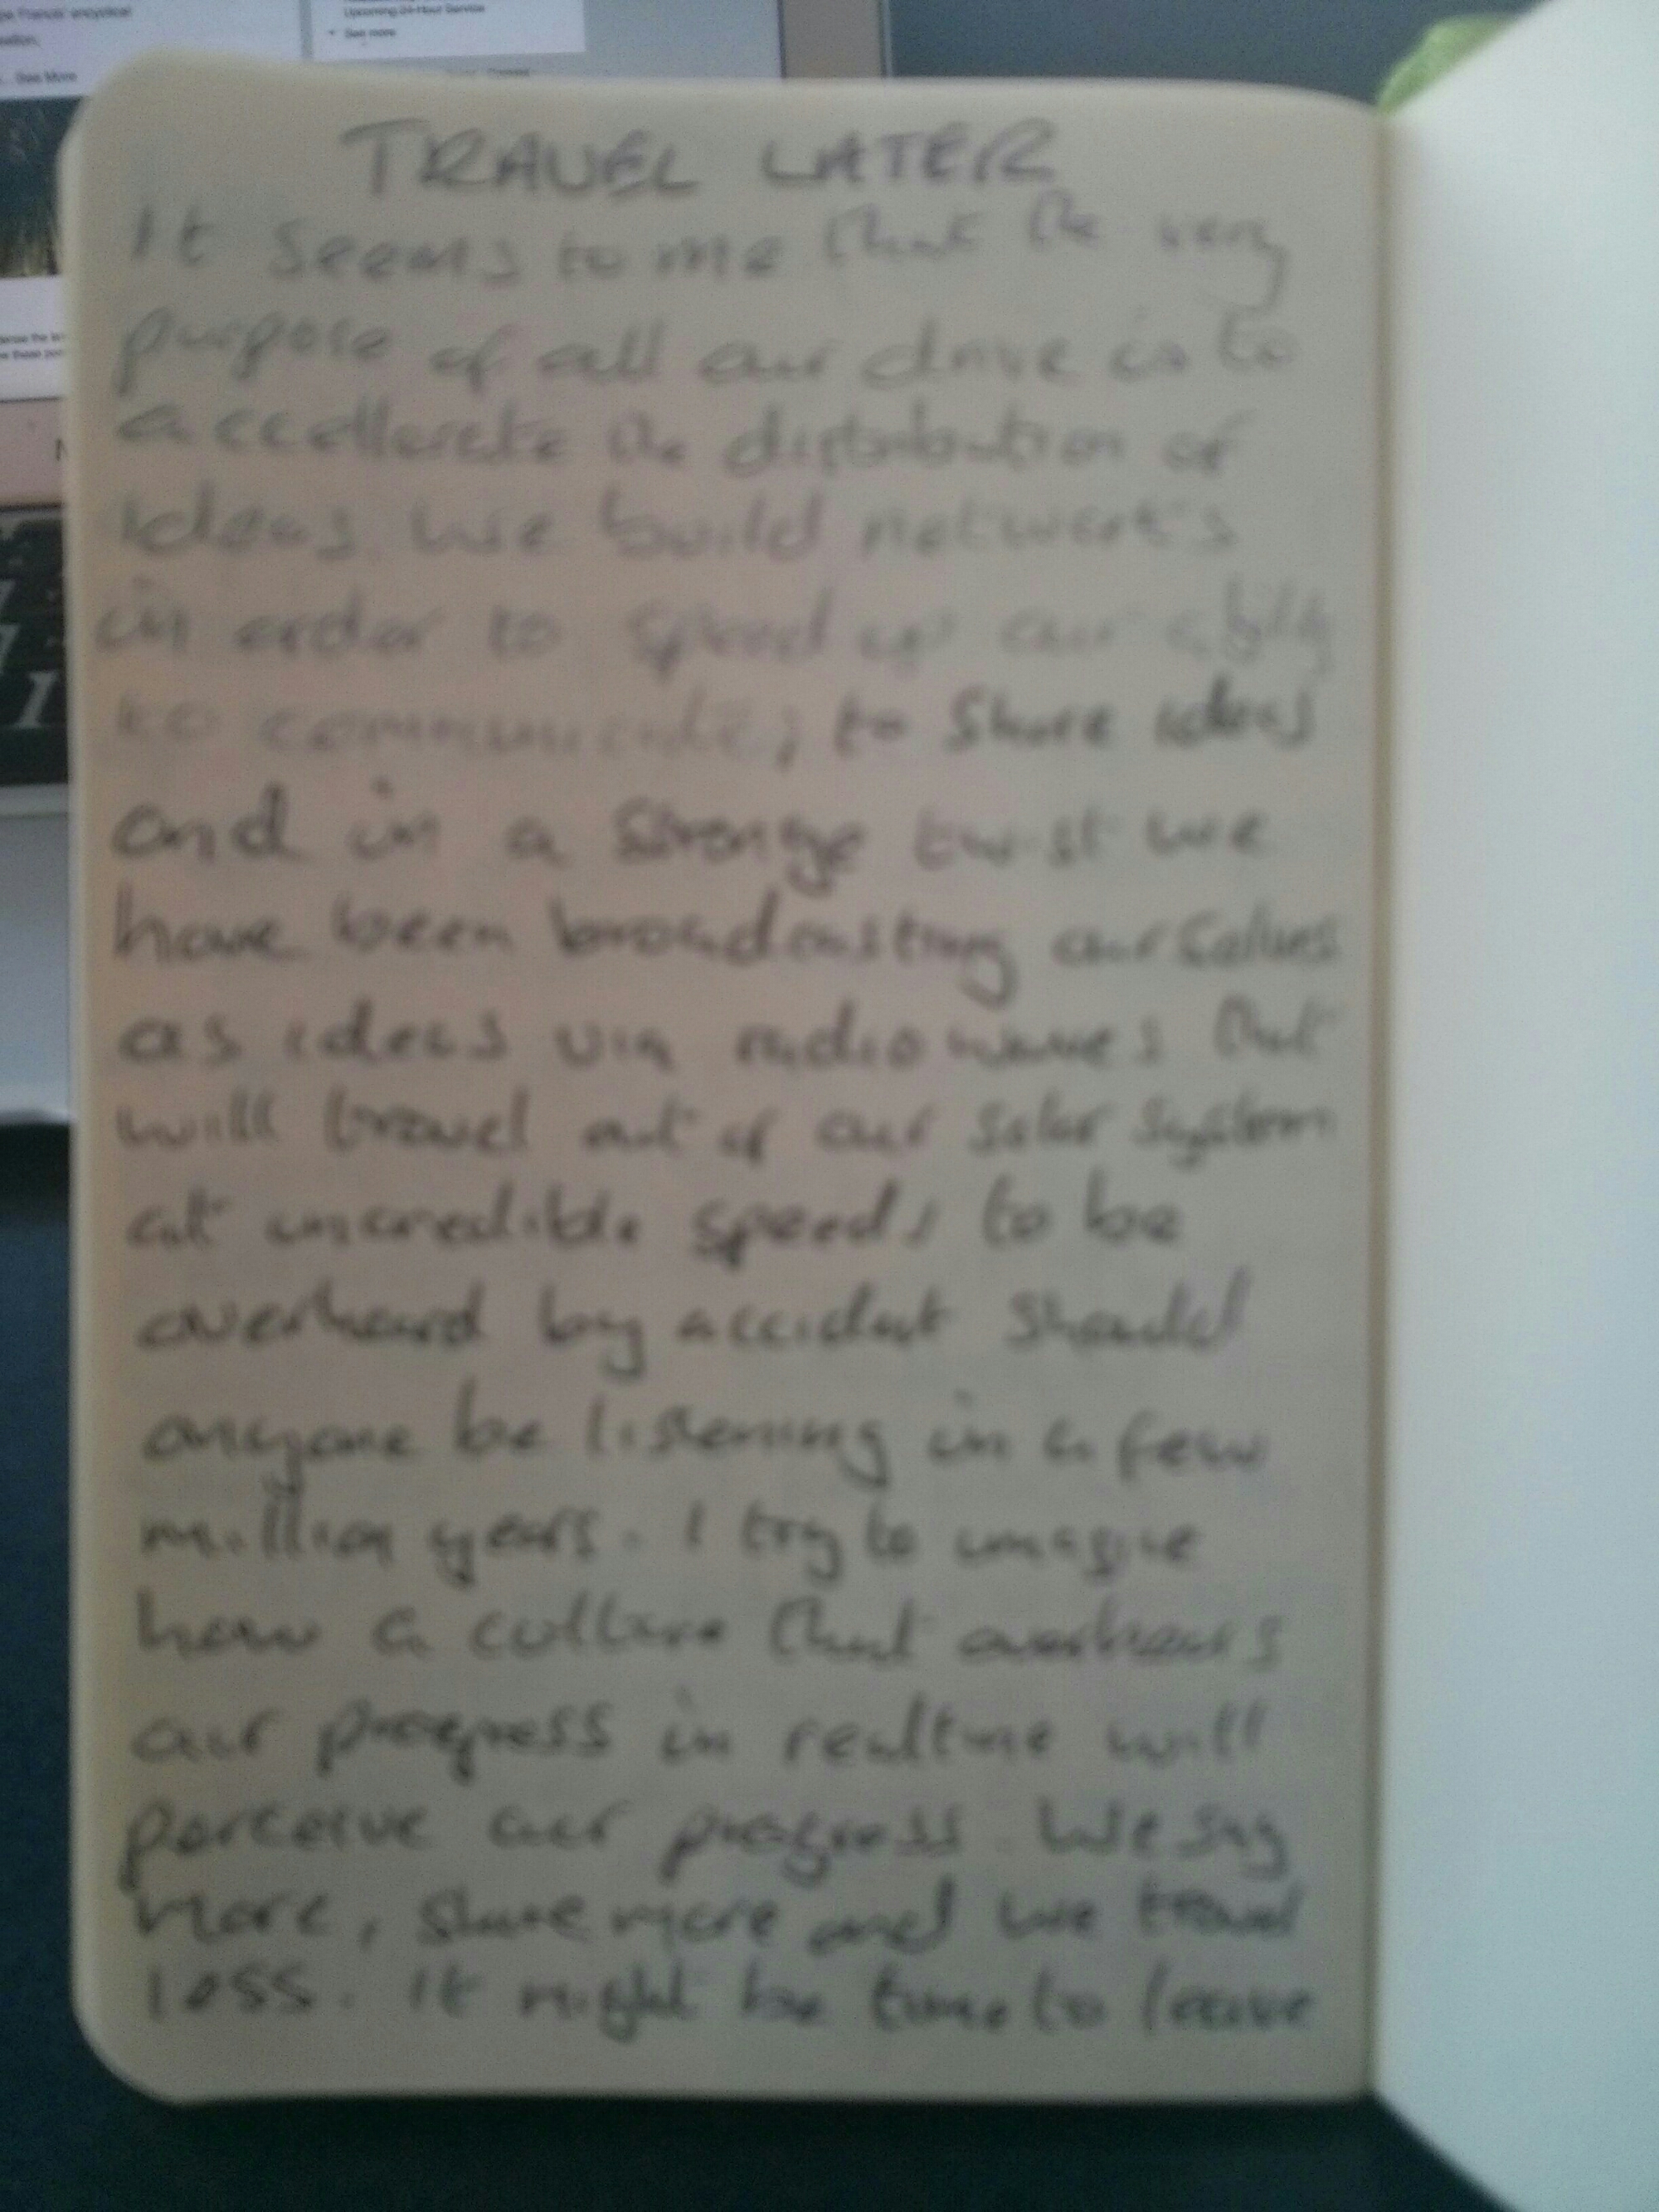 Upcoming 24-Hour Service
See more
pe Francis' encyclical
See More
TRAVEL LATER
It seems to me that the very
purpose of all our drive is to
accellerate the distribution of
ideas. We build networks
in order to speed up our ability
to communicate; to share ideas
and in a strange twist we
have been broadcasting ourselves
as ideas via radiowaves that
will travel out of our solar system
at incredible speeds to be
overheard by accident should
anyone be listening in a few
million years. I try to imagine
how a culture that overhears
our progress in realtime will
perceive our progress. We say
more, share more and we travel
less. It might be time to leave